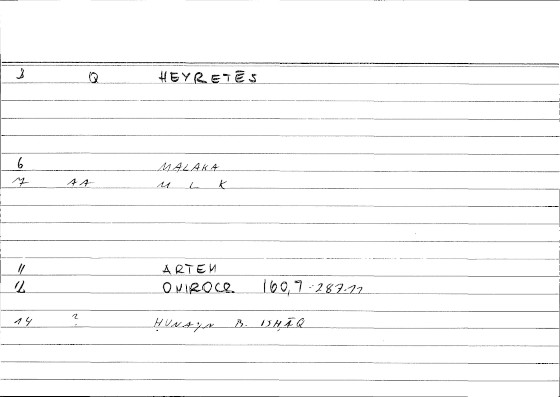 3 Q HEYRETĒS
6 MALAKA
7 AA M L K
11 ARTEM
12 ONIROCR. 160,9-287.11
14 ? ḤUNAYN B. ISḤĀQ